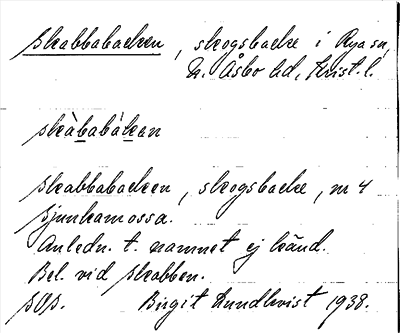 Skabbabacken, skogsbacke i Rya sn,
N. Åsbo hd, Krist. l.
skàbabákan
Skabbabacken, skogsbacke, nr 4
Sjunkamossa.
Anledn. t. namnet ej känd.
Bel. vid Skabben.
Birgit Lundkvist 1938.